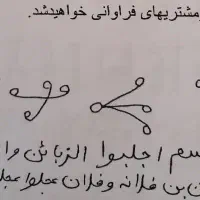 مشتریهای فراوانی خواهیدشد.
سم اجلبوا الزبائن وا
ن بن فلانه وفلان عجلوا عجلـ